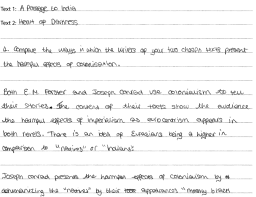 Text 1: A Passage to India
Text 2: Heart of Darkness
Q. Compare the ways in which the writers of your two chosen texts present
the harmful effects of colonisation.
Both E.M. Forster and Joseph Conrad use colonialism to tell
their stories. The content of their texts show the audience
the harmful effects of imperialism as appears in
both novels. There is an idea of Europeans being higher in
comparison to "natives" or "Indians".
Joseph Conrad presents the harmful effects of colonialism by
dehumanizing the "natives" by their appearances. "many black